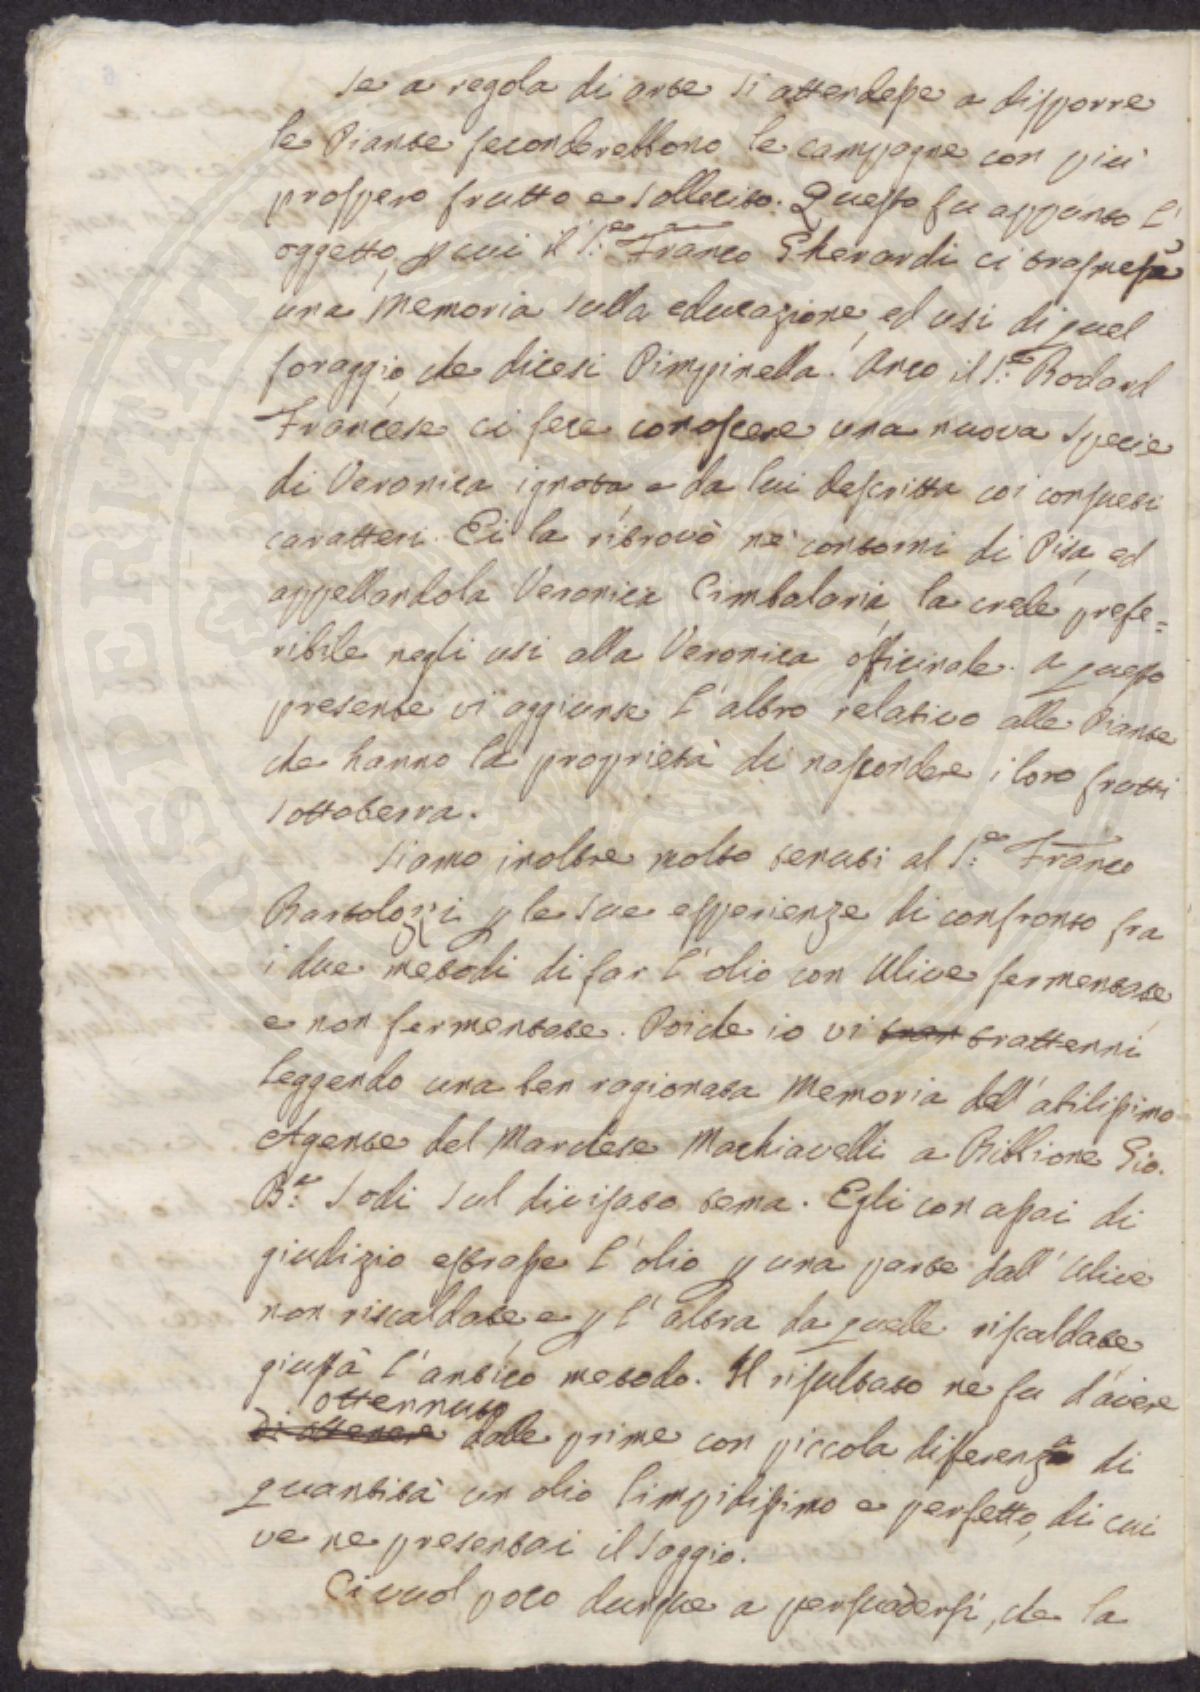 se a regola di arte si attendesse a disporre
le Piante seconderebbono le campagne con più
prospero frutto e sollecito. Questo fu appunto l'
oggetto, p cui il S.r Franco Gherardi ci trasmesse
una Memoria sulla educazione, ed usi di quel
foraggio, che dicesi Pimpinella. Anco il S.r Rodard
Francese ci fece conoscere una nuova specie
di Veronica ignota, e da lui descritta coi consueti
caratteri. Ei la ritrovò ne' contorni di Pisa, ed
appellandola Veronica Cimbalaria, la crede prefe=
ribile negli usi alla Veronica officinale. a questo
presente vi aggiunse l'altro relativo alle Piante
che hanno la proprietà di nascondere i loro frutti
sottoterra.
Siamo inoltre molto tenuti al S.r Franco
Bartolozzi p le sue esperienze di confronto fra
i due metodi di far l'olio con Ulive fermentate
e non fermentate. Poiche io vi tran trattenni
leggendo una ben ragionata Memoria dell'abilissimo
Agente del Marchese Machiavelli a Bibbione Gio.
B.a Sodi sul divisato tema. Egli con assai di
giudizio estrasse l'olio p una parte dall'Ulive
non riscaldate, e p l'altra da quelle riscaldate
giusta l'antico metodo. Il risultato ne fu d'avere
ottennuto
di ottenere dalle prime con piccola diferenza di
quantità un olio limpidissimo e perfetto, di cui
ve ne presentai il saggio.
Ci vuol poco dunque a persuadersi, che la